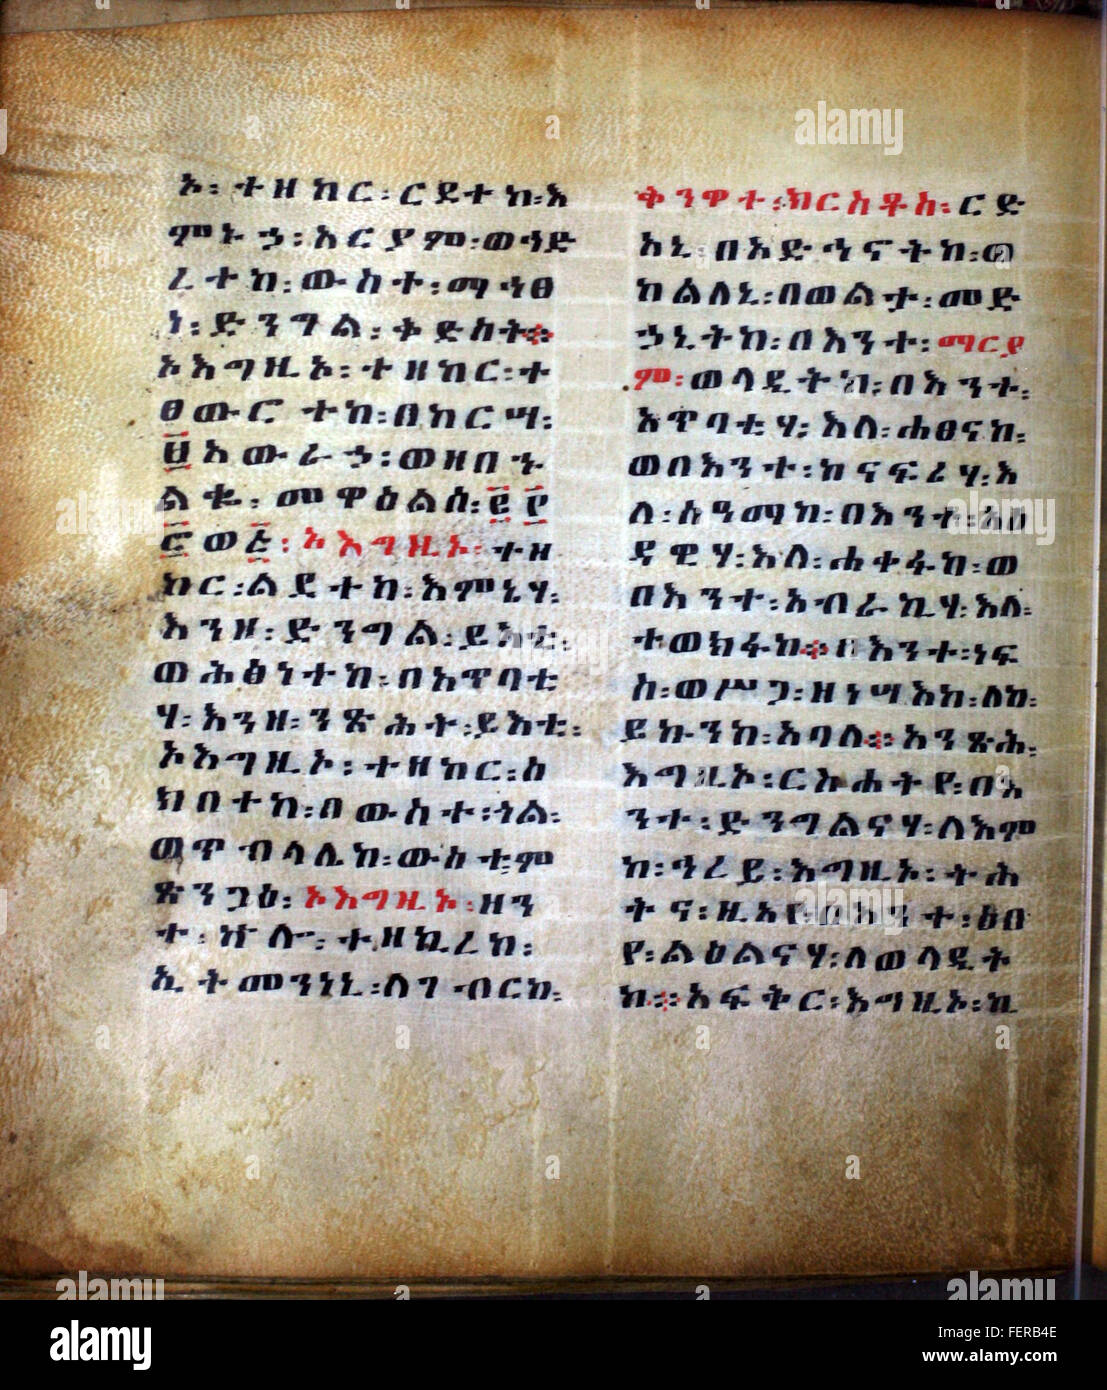 ኦ፡ ተዘከር፡ ርደተከ፡ እ
ምኑኃ፡ አርያም፡ ወኅድ
ረተከ፡ ውስተ፡ ማኅፀ
ነ፡ ድንግል፡ ቅድስት።
ኦእግዚኦ፡ ተዘከር፡ ተ
ፀውሮተከ፡ በከርሣ፡
፱ አውራኃ፡ ወዘበኍ
ልቈ፡ መዋዕልሰ፡ ፪፻
፸ወ፭፡ ኦእግዚኦ፡ ተዘ
ከር፡ ልደተከ፡ እምኔሃ፡
እንዘ፡ ድንግል፡ ይእቲ፡
ወሕፅነተከ፡ በአጥባቲ
ሃ፡ እንዘ፡ ንጽሕት፡ ይእቲ፡
ኦእግዚኦ፡ ተዘከር፡ ስ
ክበተከ፡ በውስተ፡ ጎል፡
ወጥብላሌከ፡ ውስተ፡ ም
ጽንጋዕ፡ ኦእግዚኦ፡ ዘን
ተ፡ ኵሎ፡ ተዘኪረከ፡
ኢትመንነኒ፡ ለገብርከ፡
ቅንዋተ፡ ክርስቶስ፡ ርድ
አኒ፡ በአድኅኖትከ፡ ወ
ከልለኒ፡ በወልታ፡ መድ
ኃኒትከ፡ በእንተ፡ ማርያ
ም፡ ወላዲትከ፡ በእንተ፡
አጥባቲሃ፡ እለ፡ ሐፀናከ፡
ወበእንተ፡ ከናፍሪሃ፡ እ
ለ፡ ሰዓማከ፡ በእንተ፡ እዐ
ዳዊሃ፡ እለ፡ ሐቀፋከ፡ ወ
በእንተ፡ አብራኪሃ፡ እለ፡
ተወክፋከ። በእንተ፡ ነፍ
ስ፡ ወሥጋ፡ ዘነሣእከ፡ ለከ፡
ይኩንከ፡ አባለ። አንጽሕ፡
እግዚኦ፡ ርኵሐትየ፡ በእ
ንተ፡ ድንግልናሃ፡ ለእም
ከ፡ ዓረይ፡ እግዚኦ፡ ትሕ
ትና፡ ዚአየ፡ በእንተ፡ ዕበ
የ፡ ልዕልናሃ፡ ለወላዲት
ከ። አፍቅር፡ እግዚኦ፡ ኪ
alamy
FERB4E
www.alamy.com